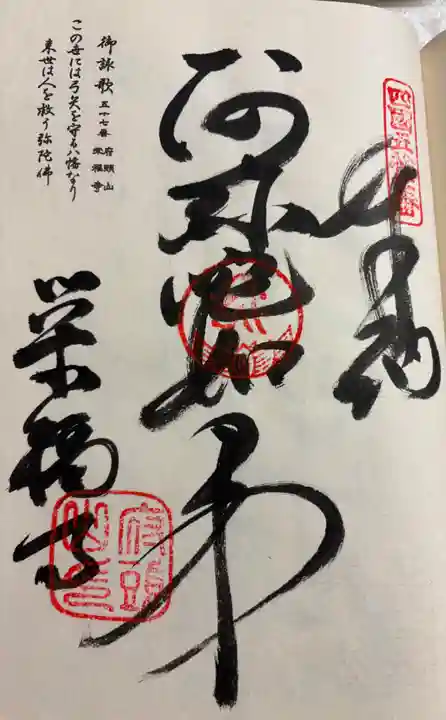 四國五十七番
奉納
阿弥陀如来
御詠歌 五十七番 府頭山 栄福寺
この世には弓矢を守る八幡なり
来世は人を救う弥陀佛
栄福寺
府頭山